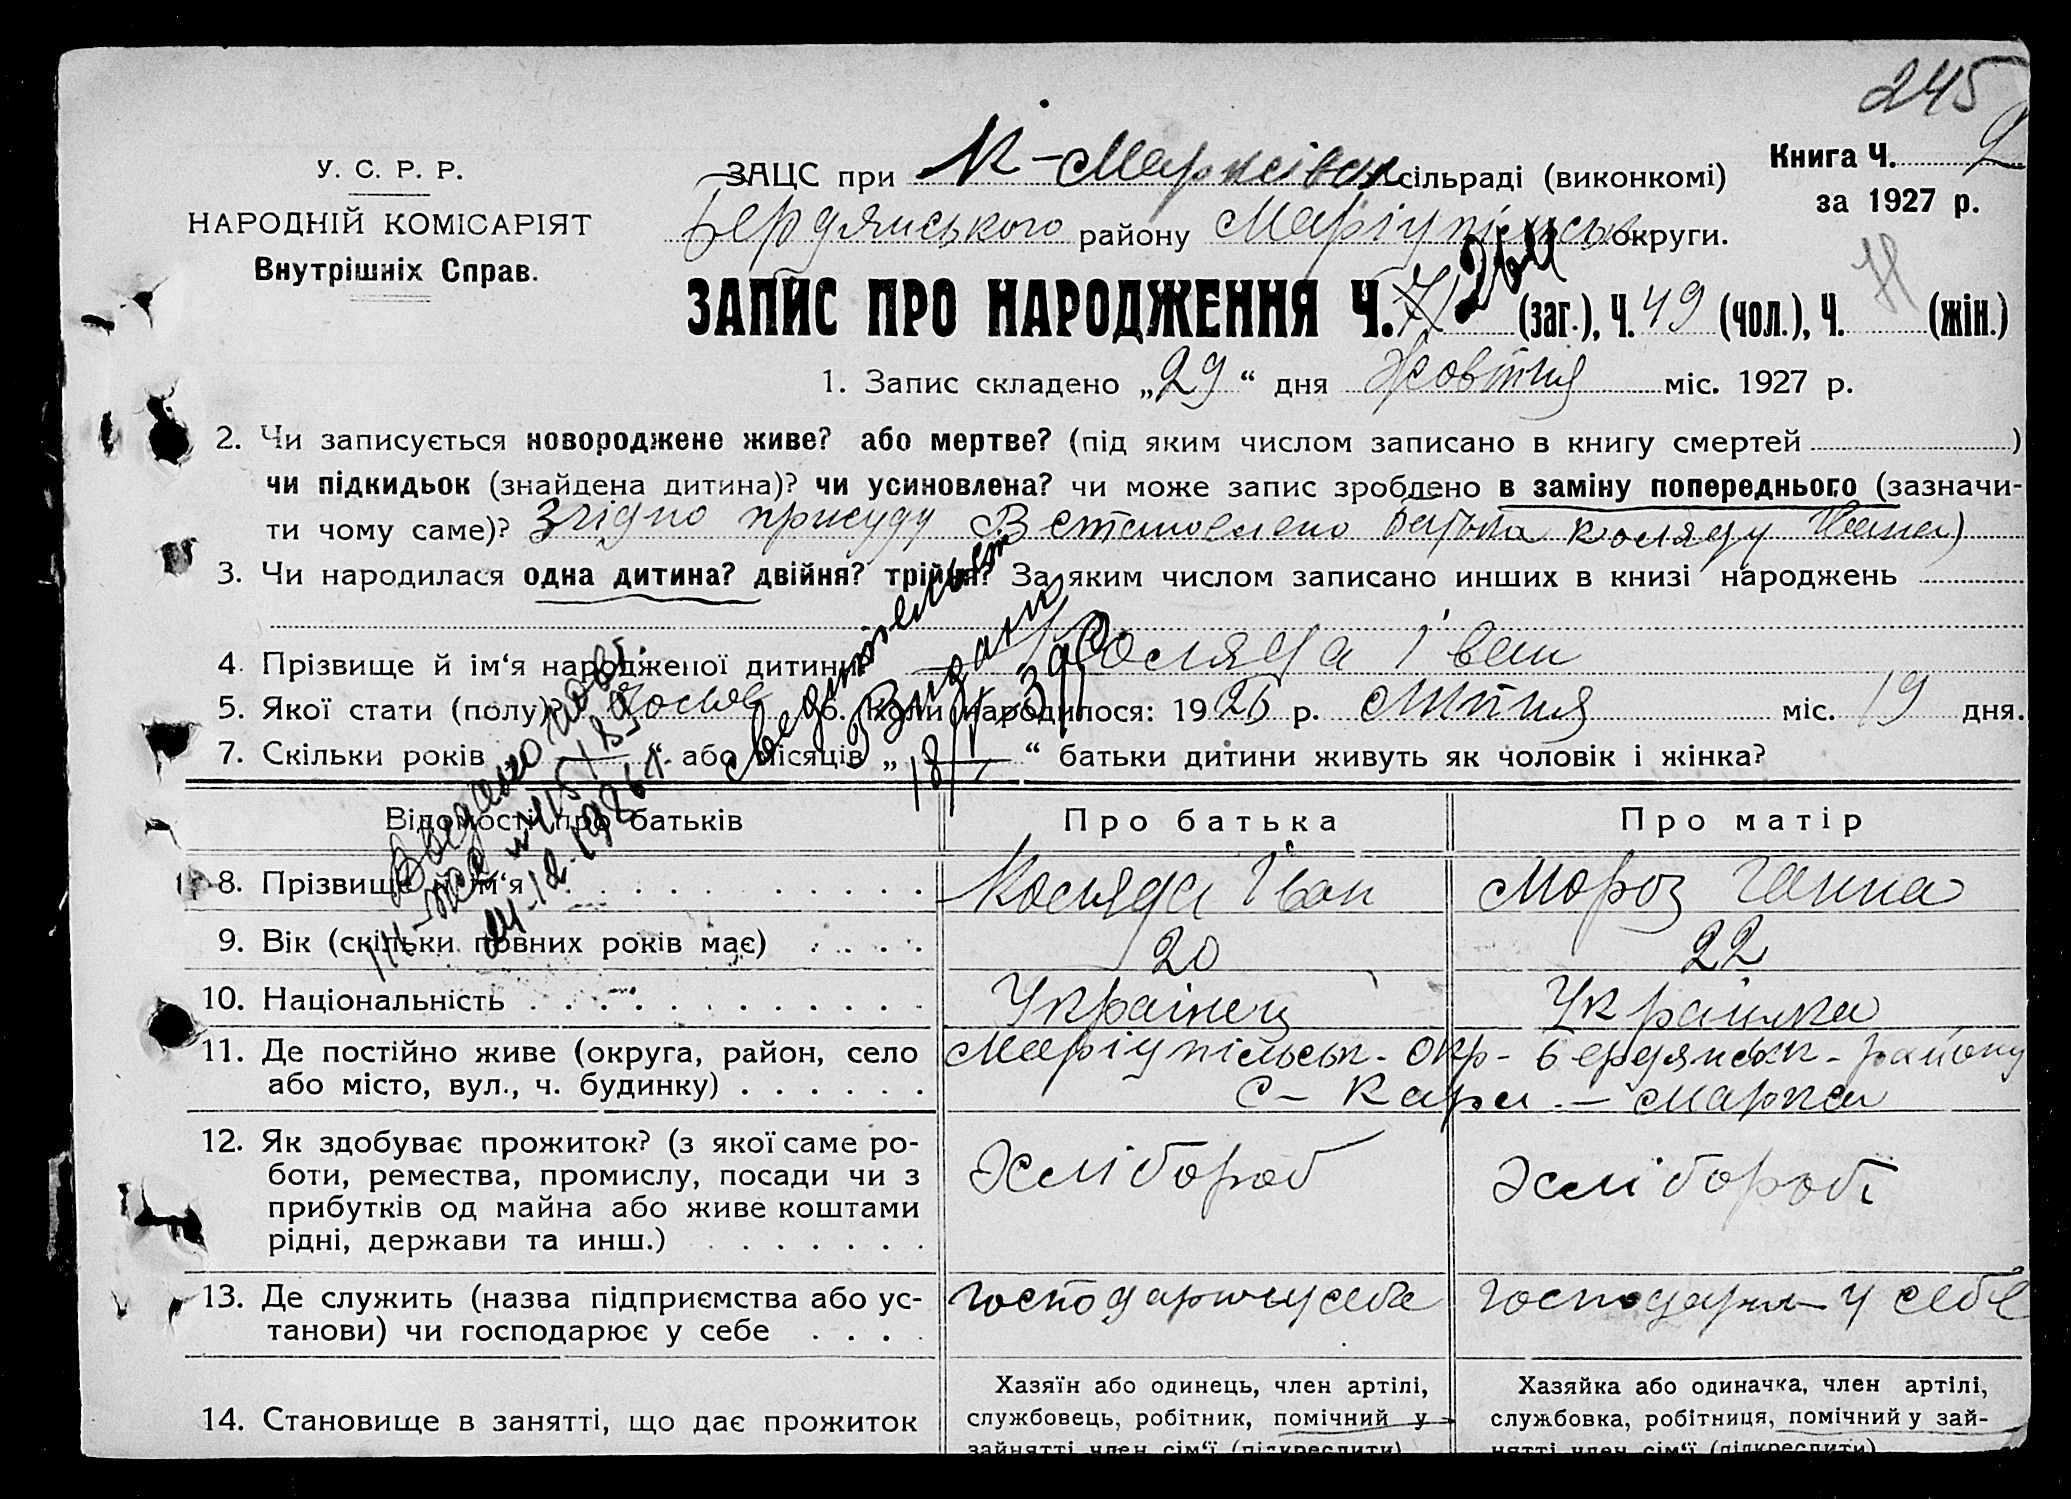 245
У. С. Р. Р.
НАРОДНІЙ КОМІСАРІЯТ
Внутрішніх Справ.
ЗАЦС при К-Марксівск сільраді (виконкомі)
Книга Ч. 2
за 1927 р.
Бердянського району Маріупільськ округи.
ЗАПИС ПРО НАРОДЖЕННЯ Ч. 71 (заг.), Ч. 49 (чол.), Ч. (жін.)
1. Запис складено „29“ дня Жовтня міс. 1927 р.
2. Чи записується новороджене живе? або мертве? (під яким числом записано в книгу смертей )
чи підкидьок (знайдена дитина)? чи усиновлена? чи може запис зроблено в заміну попереднього (зазначи-
ти чому саме)? Згідно присуду Встановлено батька Коляду Івана)
3. Чи народилася одна дитина? двійня? трійня? За яким числом записано инших в книзі народжень
4. Прізвище й ім‘я народженої дитини Коляда Іван
5. Якої стати (полу)? 6. Коли народилося: 1926 р. Липня міс. 19 дня.
7. Скільки років „ “ або місяців „ “ батьки дитини живуть як чоловік і жінка?
Свидетельство
Выдано
Выдано повт.
Відомості про батьків
Про батька
Про матір
8. Прізвище й ім‘я
Коляда Іван
Мороз Ганна
9. Вік (скільки повних років має)
20
22
10. Національність
Українец
Українка
11. Де постійно живе (округа, район, село
або місто, вул., ч. будинку)
Маріупільськ- окр- Бердянськ- району
С- Карл - Маркса
12. Як здобуває прожиток? (з якої саме ро-
боти, ремества, промислу, посади чи з
прибутків од майна або живе коштами
рідні, держави та инш.)
Хлібороб
Хлібороб
13. Де служить (назва підприємства або ус-
танови) чи господарює у себе
господарює у себе
господарює у себе
14. Становище в занятті, що дає прожиток
Хазяїн або одинець, член артілі,
службовець, робітник, помічний у
зайнятті член сім‘ї (підкреслити)
Хазяйка або одиначка, член артілі,
службовка, робітниця, помічний у зай-
нятті член сім‘ї (підкреслити)